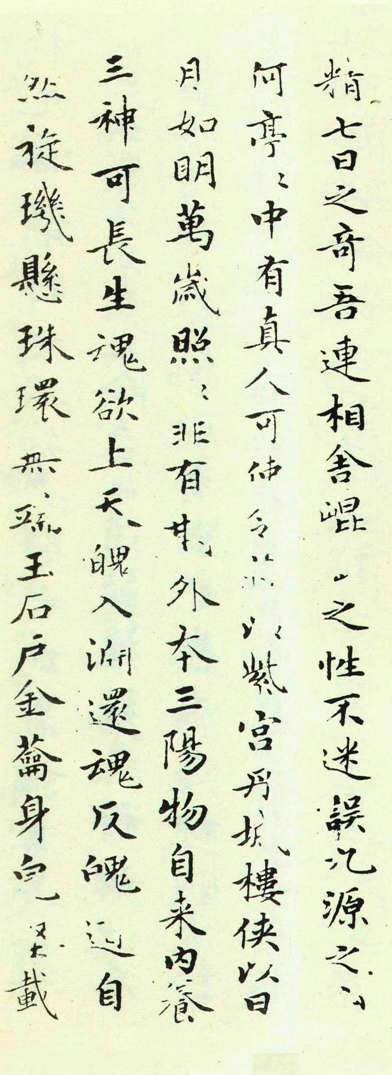 精七日之奇吾連相舍崐山之性不迷誤九源之山
何亭〻中有真人可使令蔽以紫宮丹城樓俠以日
月如明萬歲照〻非有期外本三陽物自来內養
三神可長生魂欲上天魄入淵還魂反魄道自
然旋璣懸珠環無端玉石戶金籥身完堅載